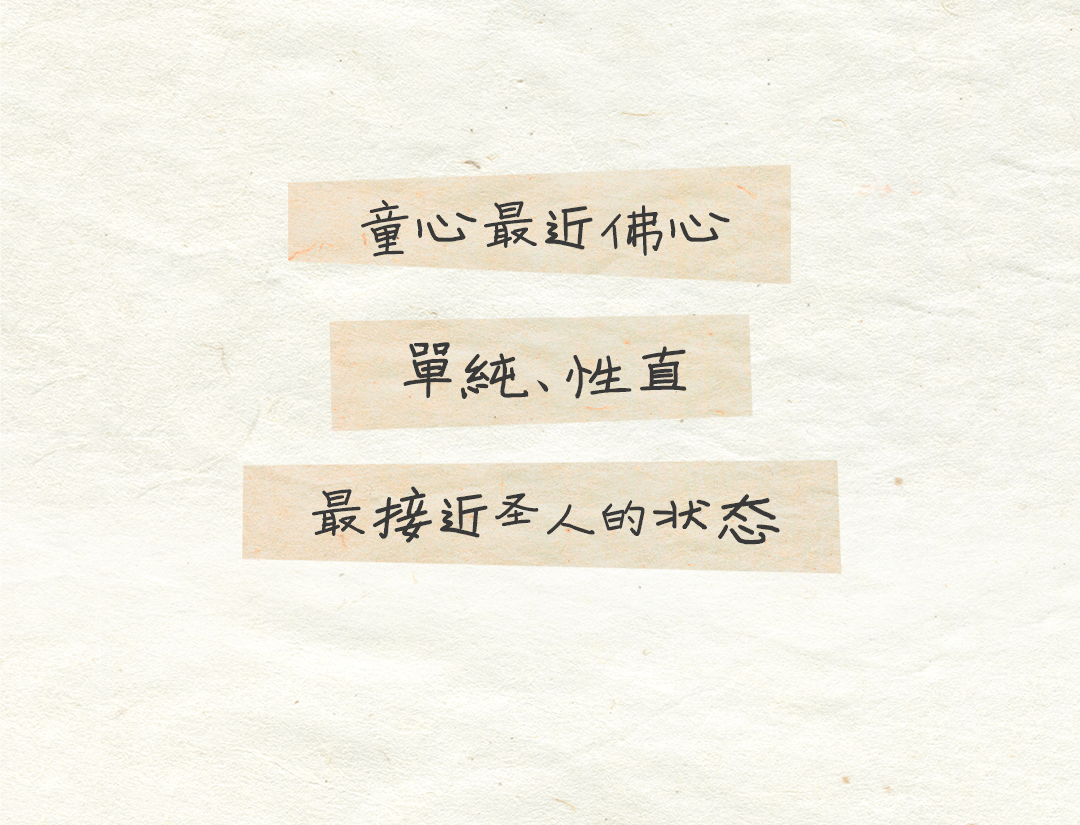 童心最近佛心
單純、性直
最接近圣人的状态